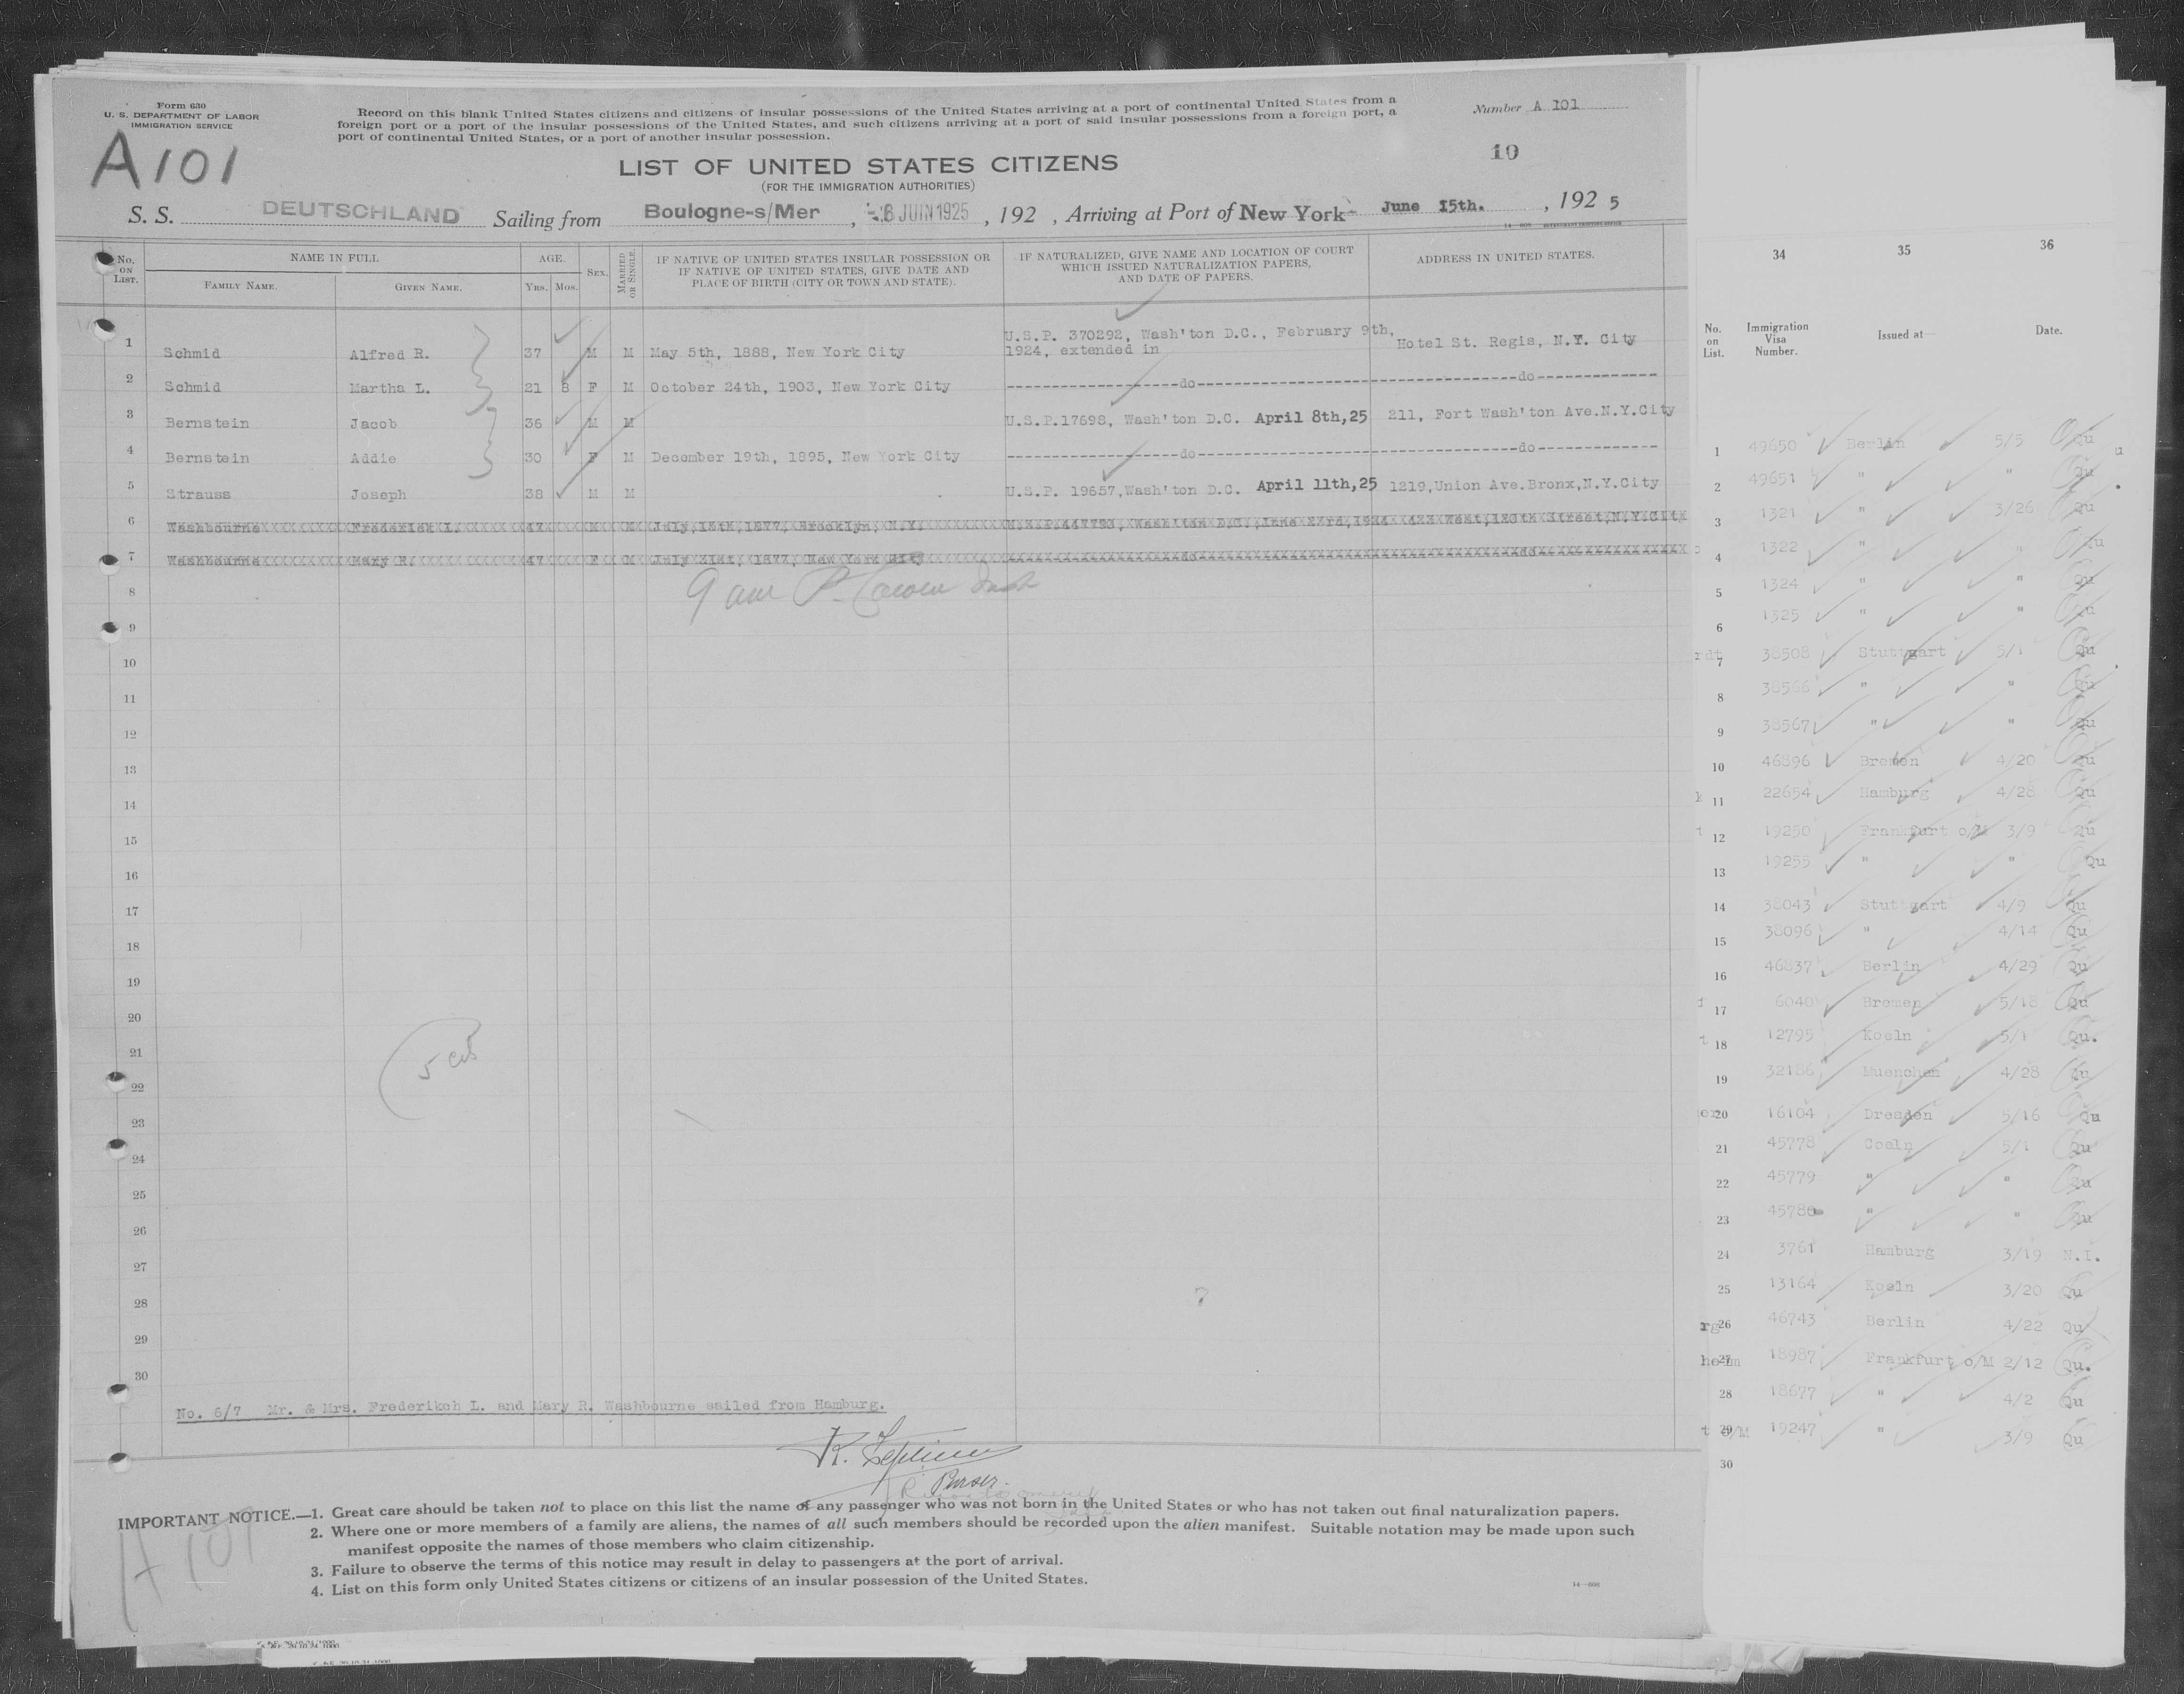 Form 630
U. S. DEPARTMENT OF LABOR
IMMIGRATION SERVICE
A101
Record on this blank United States citizens and citizens of insular possessions of the United States arriving at a port of continental United States from a
foreign port or a port of the insular possessions of the United States, and such citizens arriving at a port of said insular possessions from a foreign port, a
port of continental United States, or a port of another insular possession.
Number A 101
10
LIST OF UNITED STATES CITIZENS
(FOR THE IMMIGRATION AUTHORITIES)
S. S. DEUTSCHLAND Sailing from Boulogne-s/Mer, 6 JUIN 1925, 192 , Arriving at Port of New York- June 15th. , 192 5
No. ON LIST. NAME IN FULL AGE. SEX. MARRIED OR SINGLE. IF NATIVE OF UNITED STATES INSULAR POSSESSION OR IF NATIVE OF UNITED STATES, GIVE DATE AND PLACE OF BIRTH (CITY OR TOWN AND STATE). IF NATURALIZED, GIVE NAME AND LOCATION OF COURT WHICH ISSUED NATURALIZATION PAPERS, AND DATE OF PAPERS. ADDRESS IN UNITED STATES.
FAMILY NAME. GIVEN NAME. YRS. MOS.
1 Schmid Alfred R. 37 M M May 5th, 1888, New York City U.S.P. 370292, Wash'ton D.C., February 9th, 1924, extended in Hotel St. Regis, N.Y. City
2 Schmid Martha L. 21 8 F M October 24th, 1903, New York City ---do--- ---do---
3 Bernstein Jacob 36 M M U.S.P.17698, Wash'ton D.C. April 8th,25 211, Fort Wash'ton Ave.N.Y.City
4 Bernstein Addie 30 F M December 19th, 1895, New York City ---do--- ---do---
5 Strauss Joseph 38 M M U.S.P. 19657,Wash'ton D.C. April 11th,25 1219,Union Ave.Bronx,N.Y.City
6 Washbourne Frederick L. 47 M M July, 13th,1877, Brooklyn, N.Y. Wash'ton D.C., June 23rd,1924 Street,N.Y.City
7 Washbourne Mary R. 47 F M July 31st, 1877, New York City do do
8
9
10
11
12
13
14
15
16
17
18
19
20
21
22
23
24
25
26
27
28
29
30
5
No. 6/7 Mr. & Mrs. Frederikch L. and Mary R. Washbourne sailed from Hamburg.
Purser.
IMPORTANT NOTICE.—1. Great care should be taken not to place on this list the name of any passenger who was not born in the United States or who has not taken out final naturalization papers.
2. Where one or more members of a family are aliens, the names of all such members should be recorded upon the alien manifest. Suitable notation may be made upon such
manifest opposite the names of those members who claim citizenship.
3. Failure to observe the terms of this notice may result in delay to passengers at the port of arrival.
4. List on this form only United States citizens or citizens of an insular possession of the United States.
14—608
A 101
34 35 36
No. on List. Immigration Visa Number. Issued at— Date.
1 49650 Berlin 5/5 Qu
2 49651 " " Qu
3 1321 " 3/26 Qu
4 1322 " " Qu
5 1324 " " Qu
6 1325 " " Qu
7 38508 Stuttgart 5/1 Qu
8 38566 " " Qu
9 38567 " " Qu
10 46896 Bremen 4/20 Qu
11 22654 Hamburg 4/28 Qu
12 19250 Frankfurt o/M 3/9 Qu
13 19255 " " Qu
14 38043 Stuttgart 4/9 Qu
15 38096 " 4/14 Qu
16 46837 Berlin 4/29 Qu
17 6040 Bremen 5/18 Qu
18 12795 Koeln 5/1 Qu.
19 32186 Muenchen 4/28 Qu
20 16104 Dresden 5/16 Qu
21 45778 Coeln 5/1 Qu
22 45779 " " Qu
23 45780 " " Qu
24 3761 Hamburg 3/19 N.I.
25 13164 Koeln 3/20 Qu
26 46743 Berlin 4/22 Qu
27 18987 Frankfurt o/M 2/12 Qu.
28 18677 " 4/2 Qu
29 19247 " 3/9 Qu
30